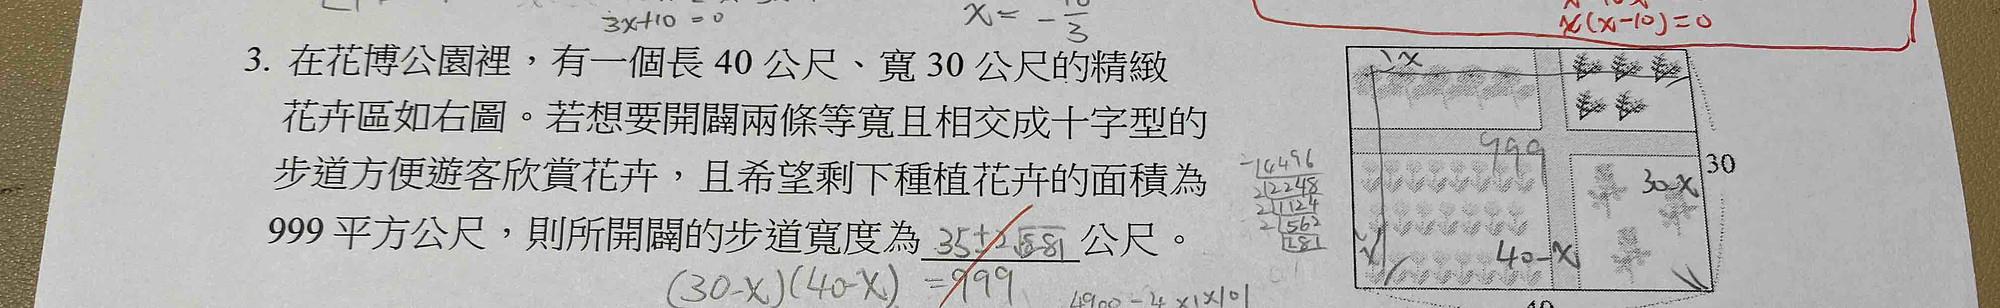 3x+10=0
x= -10/3
x(x-10)=0
3. 在花博公園裡，有一個長 40 公尺、寬 30 公尺的精緻
花卉區如右圖。若想要開闢兩條等寬且相交成十字型的
步道方便遊客欣賞花卉，且希望剩下種植花卉的面積為
999 平方公尺，則所開闢的步道寬度為 35±2√281 公尺。
(30-x)(40-x) =999
4900-4×1×101
4496
2 2248
2 1124
2 562
281
x
999
30-x
30
x
40-x
40